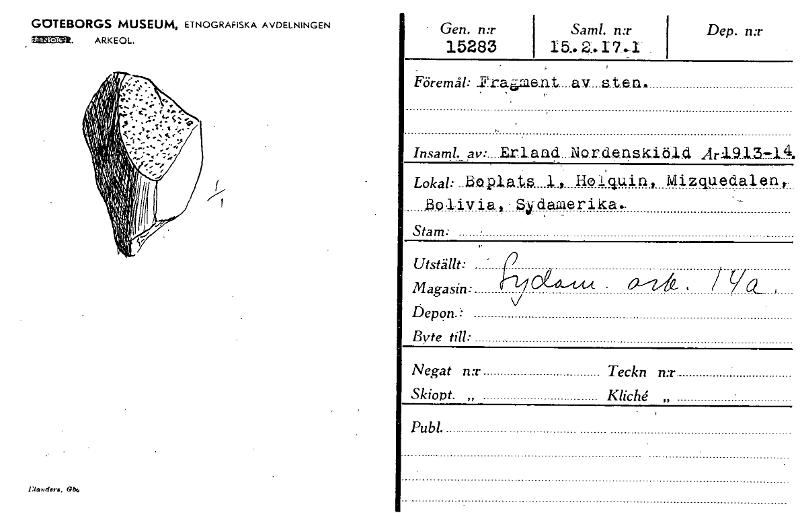 GÖTEBORGS MUSEUM, ETNOGRAFISKA AVDELNINGEN
ARKEOL.
1/1
Elanders, Gbg
Gen. n:r
15283
Saml. n:r
15.2.17.1
Dep. n:r
Föremål: Fragment av sten.
Insaml. av: Erland Nordenskiöld År 1913-14.
Lokal: Boplats 1, Holquin, Mizquedalen,
Bolivia, Sydamerika.
Stam:
Utställt:
Magasin: Sydam. ark. 14a.
Depon.:
Byte till:
Negat n:r Teckn n:r
Skiopt. „ Kliché „
Publ.